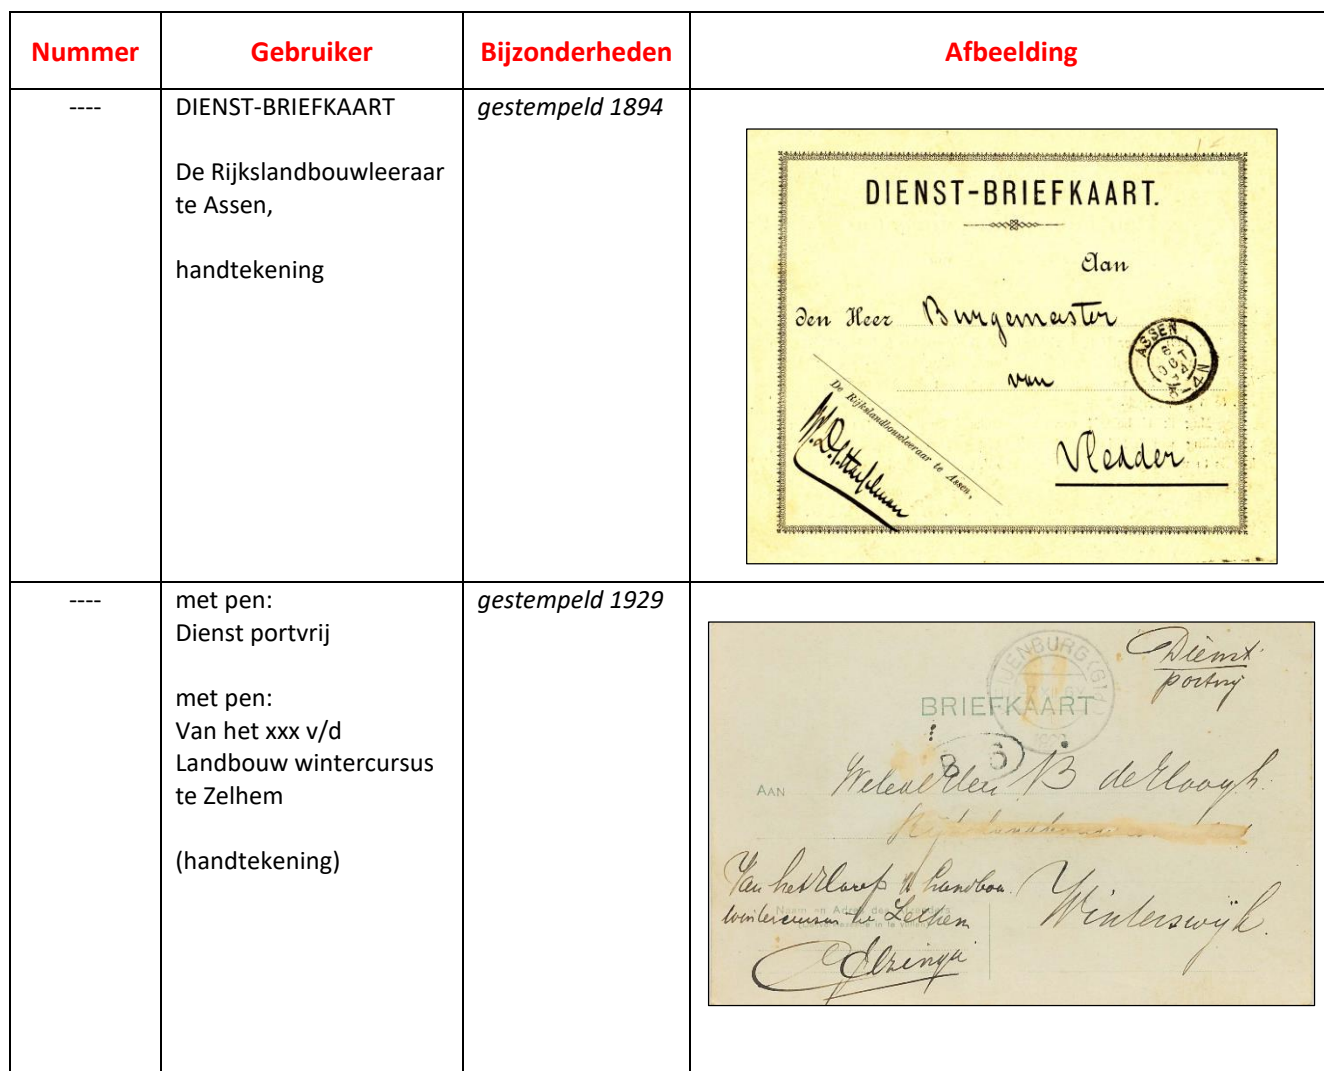 Nummer
Gebruiker
Bijzonderheden
Afbeelding
----
DIENST-BRIEFKAART
De Rijkslandbouwleeraar
te Assen,
handtekening
gestempeld 1894
DIENST-BRIEFKAART.
Aan
den Heer Burgemeester
van
Vledder
ASSEN
OCT
De Rijkslandbouwleeraar te Assen,
----
met pen:
Dienst portvrij
met pen:
Van het xxx v/d
Landbouw wintercursus
te Zelhem
(handtekening)
gestempeld 1929
Dienst
portvrij
BRIEFKAART
AAN
B de
Van het
wintercursus te Zelhem
Winterswijk.
Elzinga